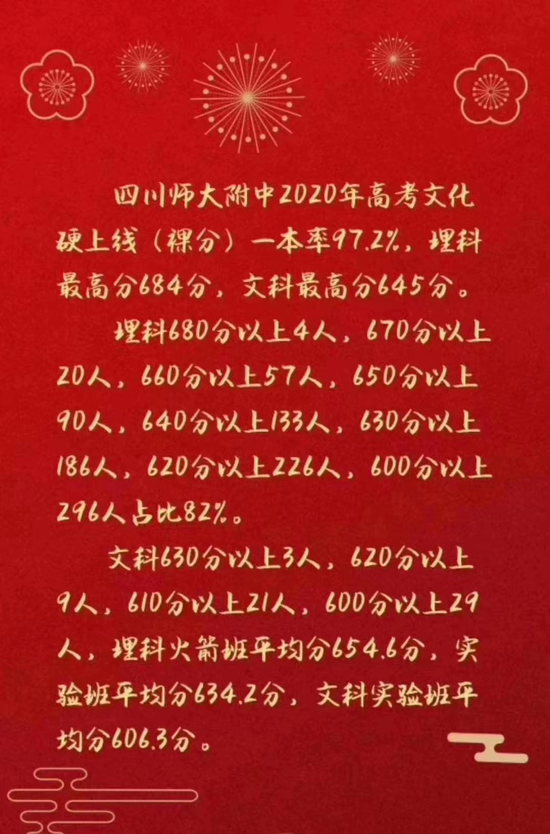 四川师大附中2020年高考文化
硬上线（裸分）一本率97.2%，理科
最高分684分，文科最高分645分。
理科680分以上4人，670分以上
20人，660分以上57人，650分以上
90人，640分以上133人，630分以上
186人，620分以上226人，600分以上
296人占比82%。
文科630分以上3人，620分以上
9人，610分以上21人，600分以上29
人，理科火箭班平均分654.6分，实
验班平均分634.2分，文科实验班平
均分606.3分。